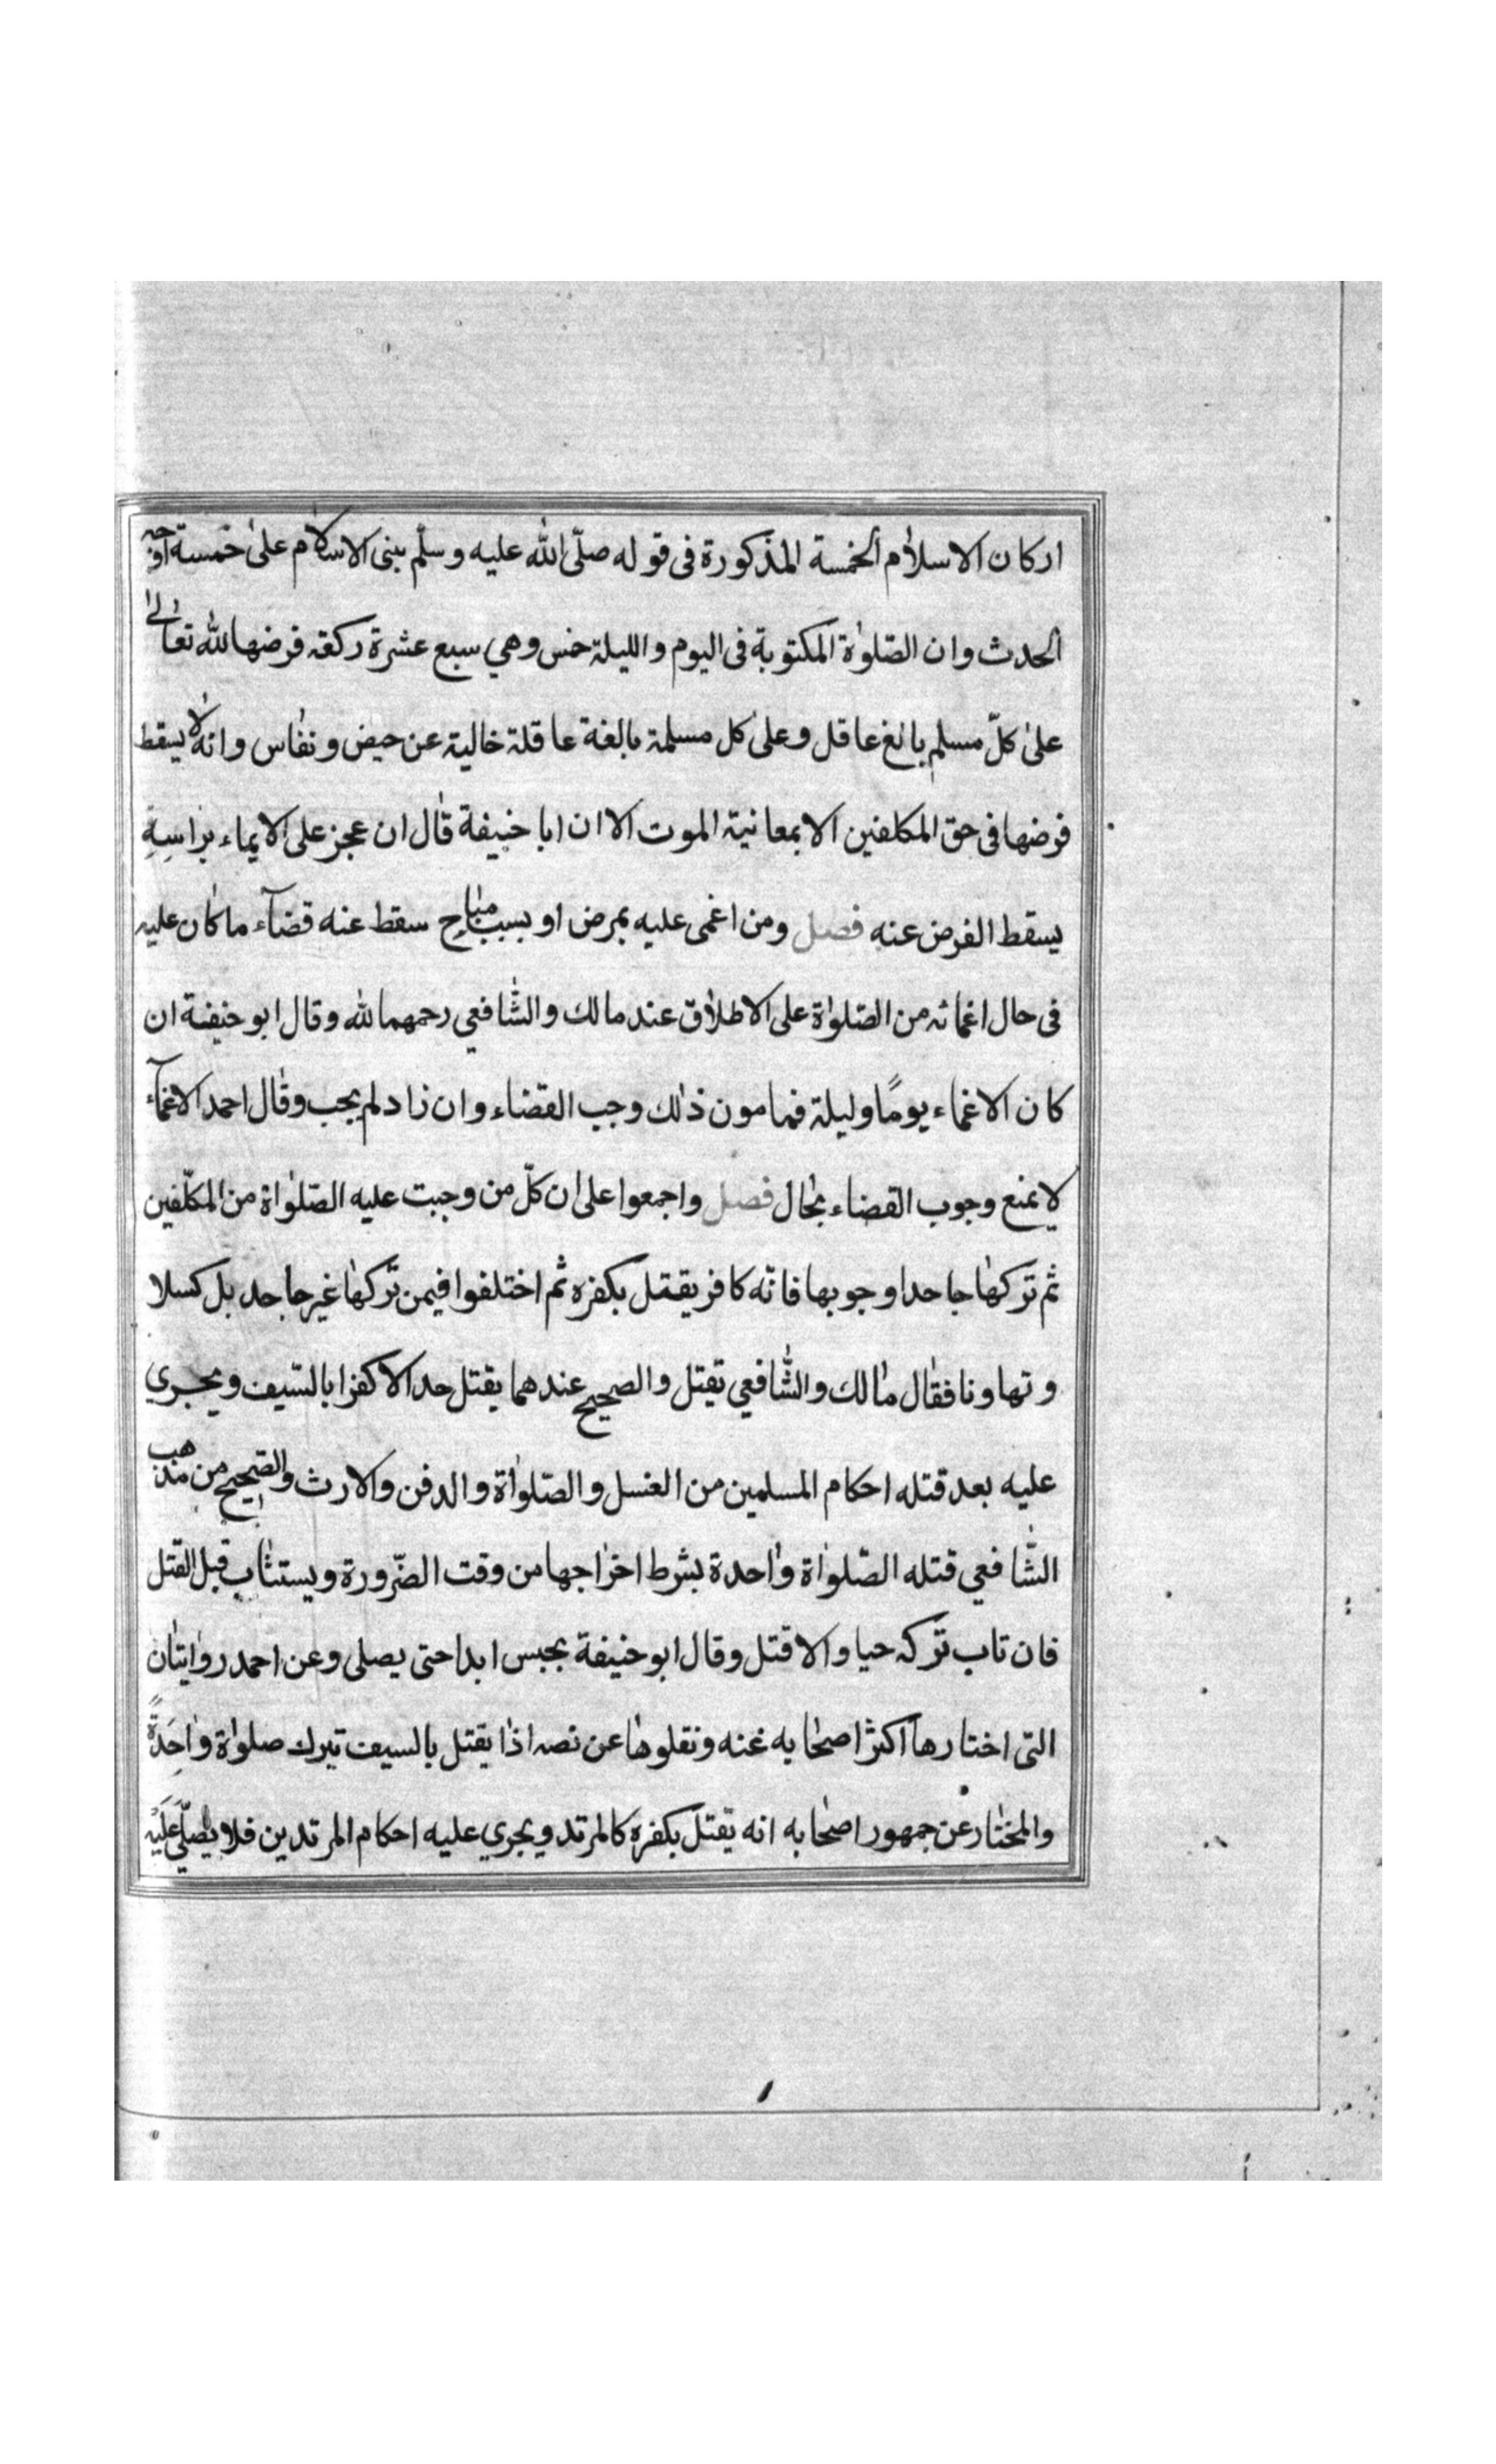 اركان الاسلام الخمسة المذكورة فى قوله صلّى الله عليه وسلّم بنى الاسلام على خمسة اوجه
الحدث وان الصّلوٰة المكتوبة فى اليوم والليلة خمس وهي سبع عشرة ركعة فرضها لله تعالىٰ
علىٰ كلّ مسلم بالغ عاقل وعلىٰ كل مسلمة بالغة عاقلة خالية عن حيض ونفاس وانه لا يسقط
فرضها فى حق المكلفين الا بمعانية الموت الا ان ابا حنيفة قال ان عجز على الايماء براسه
يسقط الفرض عنه فصل ومن اغمى عليه بمرض او بسبب مباح سقط عنه قضآء ما كان عليه
فى حال اغمائه من الصّلوٰة على الاطلاق عند مالك والشّافعي رحمهما لله وقال ابو حنيفة ان
كان الاغماء يومًا وليلة فما مون ذلك وجب القضاء وان زاد لم يجب وقال احمد الاغمآء
لا يمنع وجوب القضاء بحال فصل واجمعوا على ان كلّ من وجبت عليه الصّلوٰاة من المكلّفين
ثم تركها جاحدا وجوبها فانّه كافر يقتل بكفره ثم اختلفوا فيمن تركها غير جاحد بل كسلا
وتهاونا فقال مالك والشّافعي يقتل والصحيح عندهما يقتل حدا لا كفرا بالسّيف ويجري
عليه بعد قتله احكام المسلمين من الغسل والصّلوٰاة والدفن والارث والصّحيح من مذهب
الشّافعي قتله الصّلوٰاة واحدة بشرط اخراجها من وقت الضّرورة ويستتاب قبل القتل
فان تاب تركه حيا والا قتل وقال ابو حنيفة يحبس ابدا حتى يصلى وعن احمد روايتان
التى اختارها اكثر اصحابه عنه ونقلوها عن نصه اذا يقتل بالسيف تبرك صلوٰاة واحَدةً
والمختار عن جمهور اصحابه انه يقتل بكفره كالمرتد ويجري عليه احكام المرتدين فلا يصلّي عَليْه